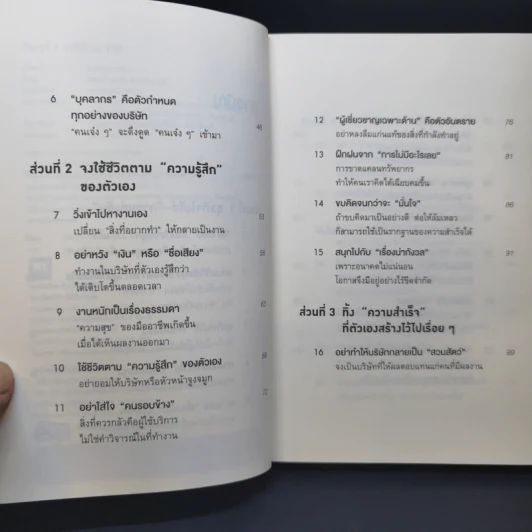 6 “บุคลากร” คือตัวกำหนด
ทุกอย่างของบริษัท
“คนเจ๋ง ๆ” จะดึงดูด “คนเจ๋ง ๆ” เข้ามา
ส่วนที่ 2 จงใช้ชีวิตตาม “ความรู้สึก”
ของตัวเอง
7 วิ่งเข้าไปหางานเอง
เปลี่ยน “สิ่งที่อยากทำ” ให้กลายเป็นงาน
8 อย่าหวัง “เงิน” หรือ “ชื่อเสียง”
ทำงานในบริษัทที่ตัวเองรู้สึกว่า
ได้เติบโตขึ้นตลอดเวลา
9 งานหนักเป็นเรื่องธรรมดา
“ความสุข” ของมืออาชีพเกิดขึ้น
เมื่อได้เห็นผลงานออกมา
10 ใช้ชีวิตตาม “ความรู้สึก” ของตัวเอง
อย่ายอมให้บริษัทหรือหัวหน้าจูงจมูก
11 อย่าใส่ใจ “คนรอบข้าง” 72
สิ่งที่ควรกลัวคือผู้ใช้บริการ
ไม่ใช่คำวิจารณ์ในที่ทำงาน
12 “ผู้เชี่ยวชาญเฉพาะด้าน” คือตัวอันตราย 78
อย่าหลงลืมแก่นแท้ของสิ่งที่กำลังทำอยู่
13 ฝึกฝนจาก “การไม่มีอะไรเลย”
การขาดแคลนทรัพยากร
ทำให้คนเราคิดได้เฉียบคมขึ้น
14 ขบคิดจนกว่าจะ “มั่นใจ”
ถ้าขบคิดมาเป็นอย่างดี ต่อให้ล้มเหลว
ก็สามารถใช้เป็นรากฐานของความสำเร็จได้
15 สนุกไปกับ “เรื่องน่ากังวล” 91
เพราะอนาคตไม่แน่นอน
โอกาสจึงมีอยู่อย่างไร้ขีดจำกัด
ส่วนที่ 3 ทิ้ง “ความสำเร็จ”
ที่ตัวเองสร้างไว้ไปเรื่อย ๆ
16 อย่าทำให้บริษัทกลายเป็น “สวนสัตว์” 99
จงเป็นบริษัทที่ให้ผลตอบแทนแก่คนที่มีผลงาน